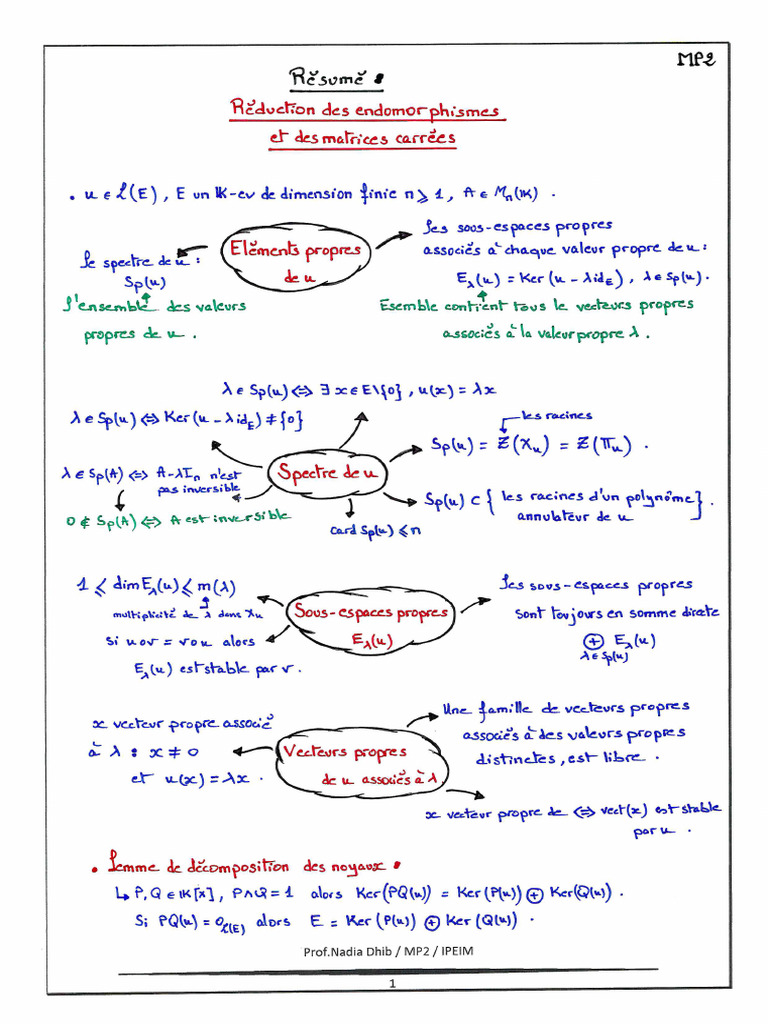 MP2
Résumé :
Réduction des endomorphismes
et des matrices carrées
• u ∈ L(E), E un IK-ev de dimension finie n ⩾ 1, A ∈ Mn(IK).
Eléments propres
de u
Le spectre de u :
Sp(u)
L'ensemble des valeurs
propres de u.
Les sous-espaces propres
associés à chaque valeur propre de u :
Eλ(u) = Ker(u - λidE), λ ∈ Sp(u).
Esemble contient tous le vecteurs propres
associés à la valeur propre λ.
λ ∈ Sp(u) ⟺ ∃ x ∈ E\{0}, u(x) = λx
λ ∈ Sp(u) ⟺ Ker(u - λidE) ≠ {0}
les racines
Sp(u) = Z(χu) = Z(Πu).
Spectre de u
λ ∈ Sp(A) ⟺ A - λIn n'est
pas inversible
0 ∉ Sp(A) ⟺ A est inversible
card Sp(u) ⩽ n
Sp(u) ⊂ { les racines d'un polynôme
annulateur de u }.
1 ⩽ dim Eλ(u) ⩽ m(λ)
multiplicité de λ dans χu
si uov = vou alors
Eλ(u) est stable par v.
Sous-espaces propres
Eλ(u)
Les sous-espaces propres
sont toujours en somme directe
⊕ Eλ(u)
λ∈Sp(u)
x vecteur propre associé
à λ : x ≠ 0
et u(x) = λx.
Vecteurs propres
de u associés à λ
Une famille de vecteurs propres
associés à des valeurs propres
distinctes, est libre.
x vecteur propre de ⟺ vect(x) est stable
par u.
• Lemme de décomposition des noyaux :
↳ P, Q ∈ IK[x], P∧Q = 1 alors Ker(PQ(u)) = Ker(P(u)) ⊕ Ker(Q(u)).
Si PQ(u) = 0L(E) alors E = Ker(P(u)) ⊕ Ker(Q(u)).
Prof.Nadia Dhib / MP2 / IPEIM
1